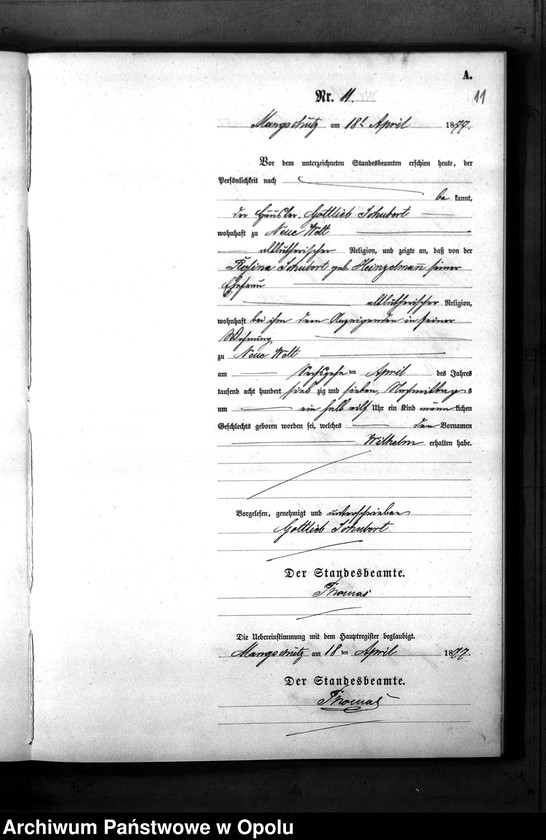 A.
Nr. 11.
11
Mangschütz am 18t April 1877.
Vor dem unterzeichneten Standesbeamten erschien heute, der
Persönlichkeit nach
be kannt,
der Häusler Gottlieb Schubert
wohnhaft zu Neue Welt
altlutherischer Religion, und zeigte an, daß von der
Rosina Schubert geb. Heinzelman seiner
Ehefrau
altlutherischer Religion,
wohnhaft bei ihm dem Anzeigenden in seiner
Wohnung
zu Neue Welt
am Sechzehn ten April des Jahres
tausend acht hundert sieb zig und sieben, Nachmittag s
um ein halb elf Uhr ein Kind männ lichen
Geschlechts geboren worden sei, welches den Vornamen
Wilhelm erhalten habe.
Vorgelesen, genehmigt und unterschrieben
Gottlieb Schubert
Der Standesbeamte.
Thomas
Die Uebereinstimmung mit dem Hauptregister beglaubigt.
Mangschütz am 18 ten April 1877.
Der Standesbeamte.
Thomas
Archiwum Państwowe w Opolu